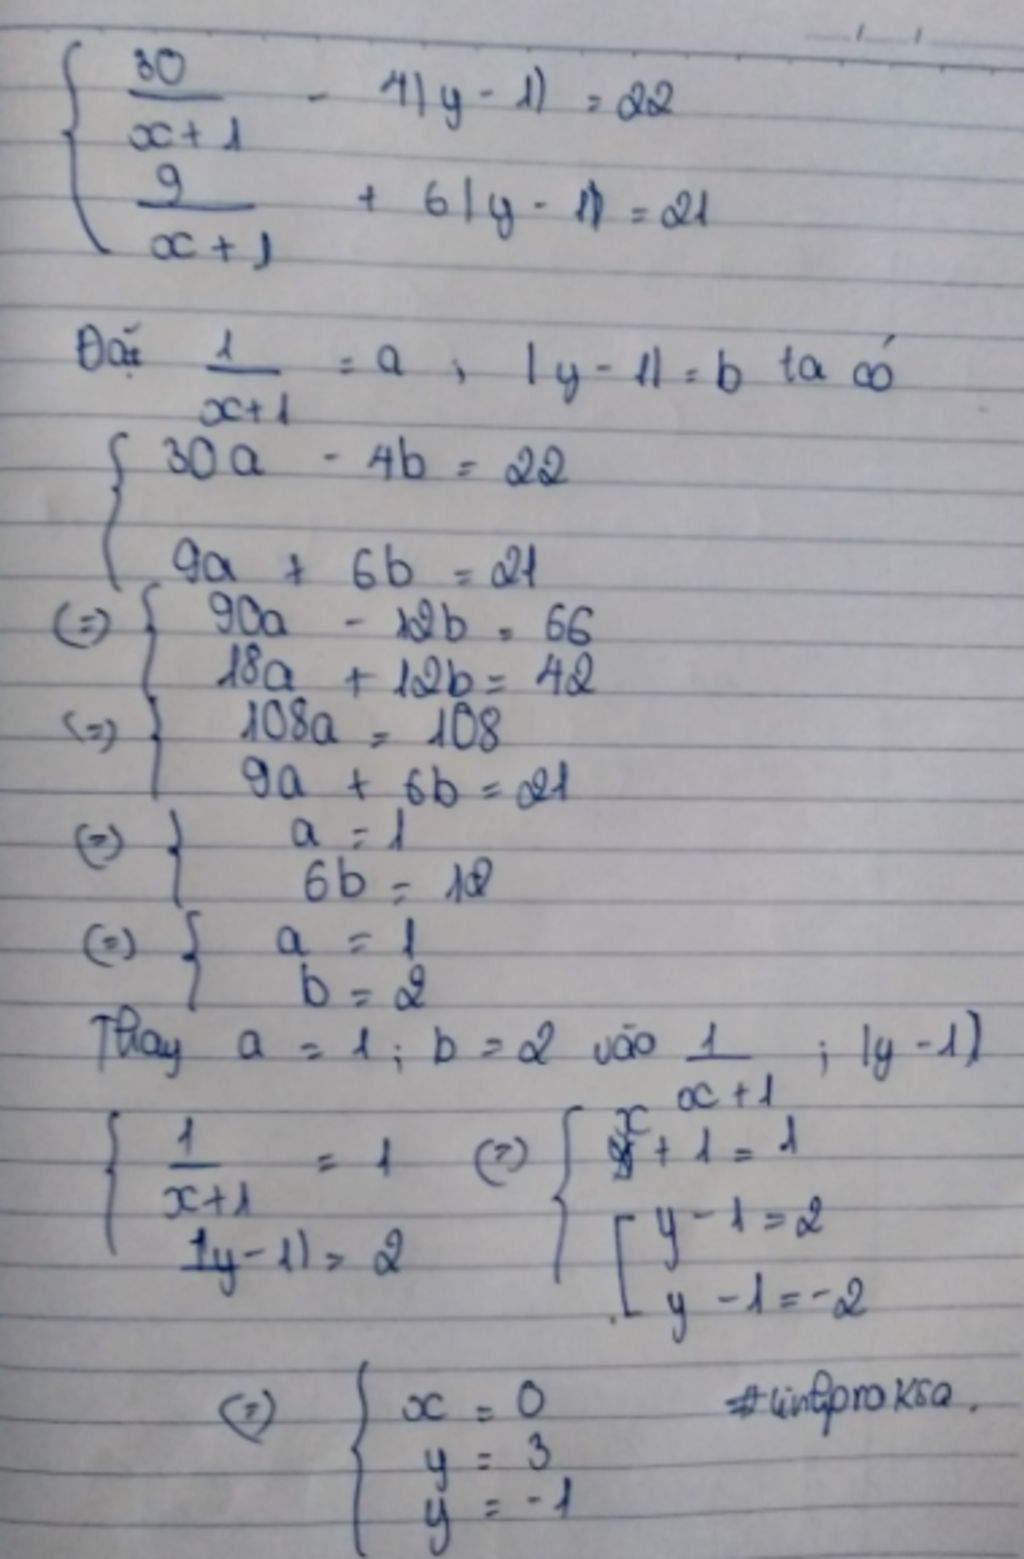 { 30/(x+1) - 4|y-1| = 22
9/(x+1) + 6|y-1| = 21
Đặt 1/(x+1) = a ; |y-1| = b ta có
{ 30a - 4b = 22
9a + 6b = 21
(=) { 90a - 12b = 66
18a + 12b = 42
(=) { 108a = 108
9a + 6b = 21
(=) { a = 1
6b = 12
(=) { a = 1
b = 2
Thay a = 1 ; b = 2 vào 1/(x+1) ; |y-1|
{ 1/(x+1) = 1 (=) { x + 1 = 1
|y-1| = 2 [ y - 1 = 2
y - 1 = -2
(=) { x = 0
y = 3
y = -1